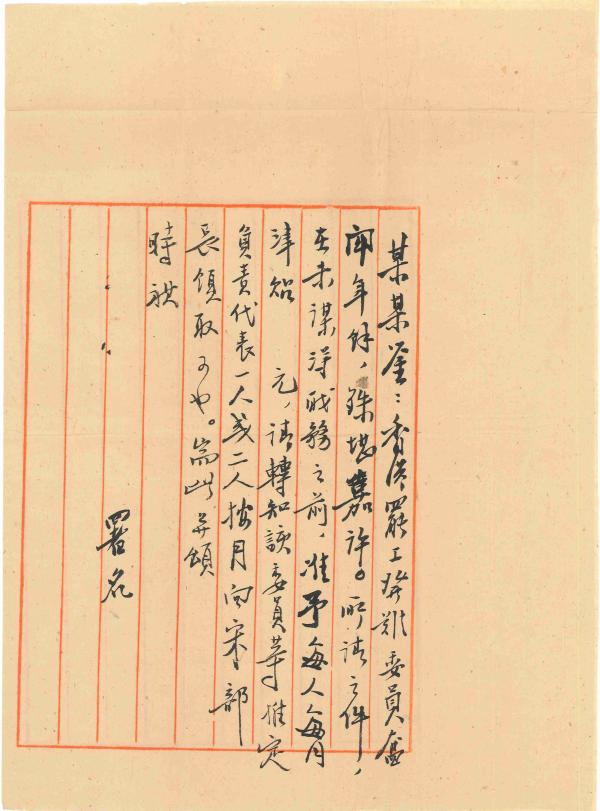 某某鉴：香港罢工辦難委員奮
鬥年餘，殊堪嘉許。所請之件，
在未謀得职務之前，准予每人每月
津贴　　元，请轉知該委員等推定
負责代表一人或二人按月向宋部
長领取可也。耑此并頌
時祺
署名